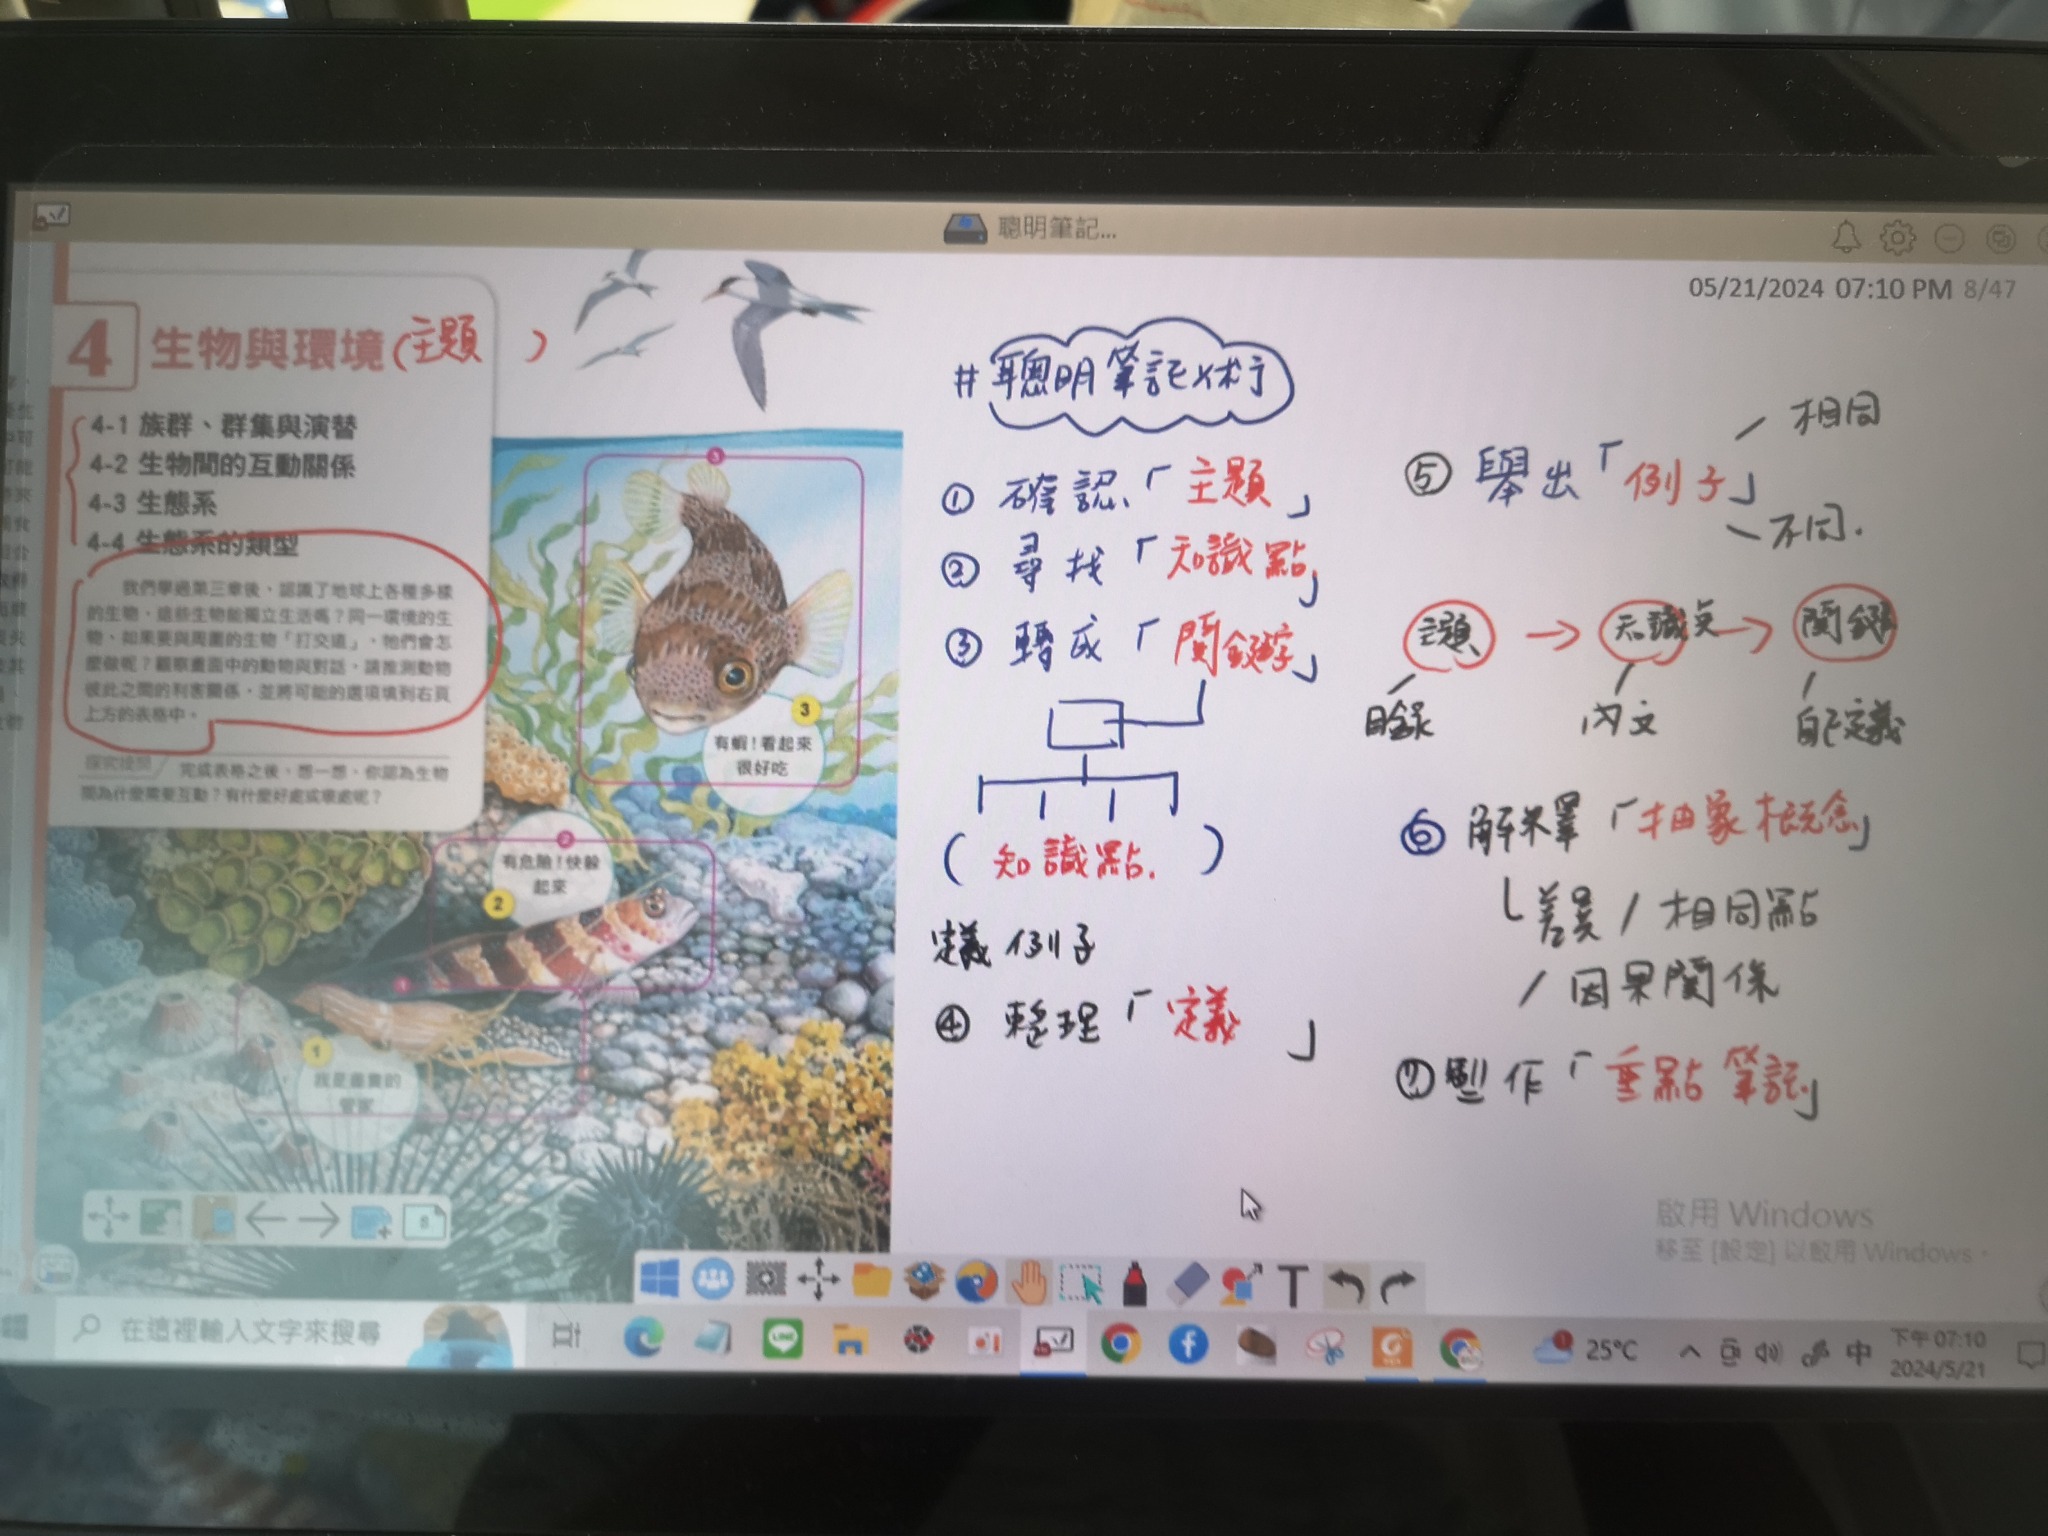 聰明筆記...
05/21/2024 07:10 PM 8/47
4 生物與環境(主題 )
4-1 族群、群集與演替
4-2 生物間的互動關係
4-3 生態系
4-4 生態系的類型
我們學過第三章後,認識了地球上各種多樣
的生物,這些生物能獨立生活嗎?同一環境的生
物,如果要與周圍的生物「打交道」,牠們會怎
麼做呢?觀察畫面中的動物與對話,請推測動物
彼此之間的利害關係,並將可能的選項填到右頁
上方的表格中。
探究提問
完成表格之後,想一想,你認為生物
間為什麼需要互動?有什麼好處或壞處呢?
3
3
有蝦!看起來
很好吃
2
有危險!快躲
起來
2
1
1
我是盡責的
管家
#聰明筆記術
① 確認「主題」
② 尋找「知識點」
③ 轉成「関鍵字」
( 知識點. )
定義 例子
④ 整理「定義 」
⑤ 舉出「例子」
相同
不同.
主題 → 知識點 → 関鍵
目錄 內文 自己定義
⑥ 解釋「抽象概念」
差異 / 相同點
/ 因果関係
⑦ 製作「重點筆記」
啟用 Windows
移至 [設定] 以啟用 Windows。
8
T
在這裡輸入文字來搜尋
LINE
25°C
中
下午 07:10
2024/5/21